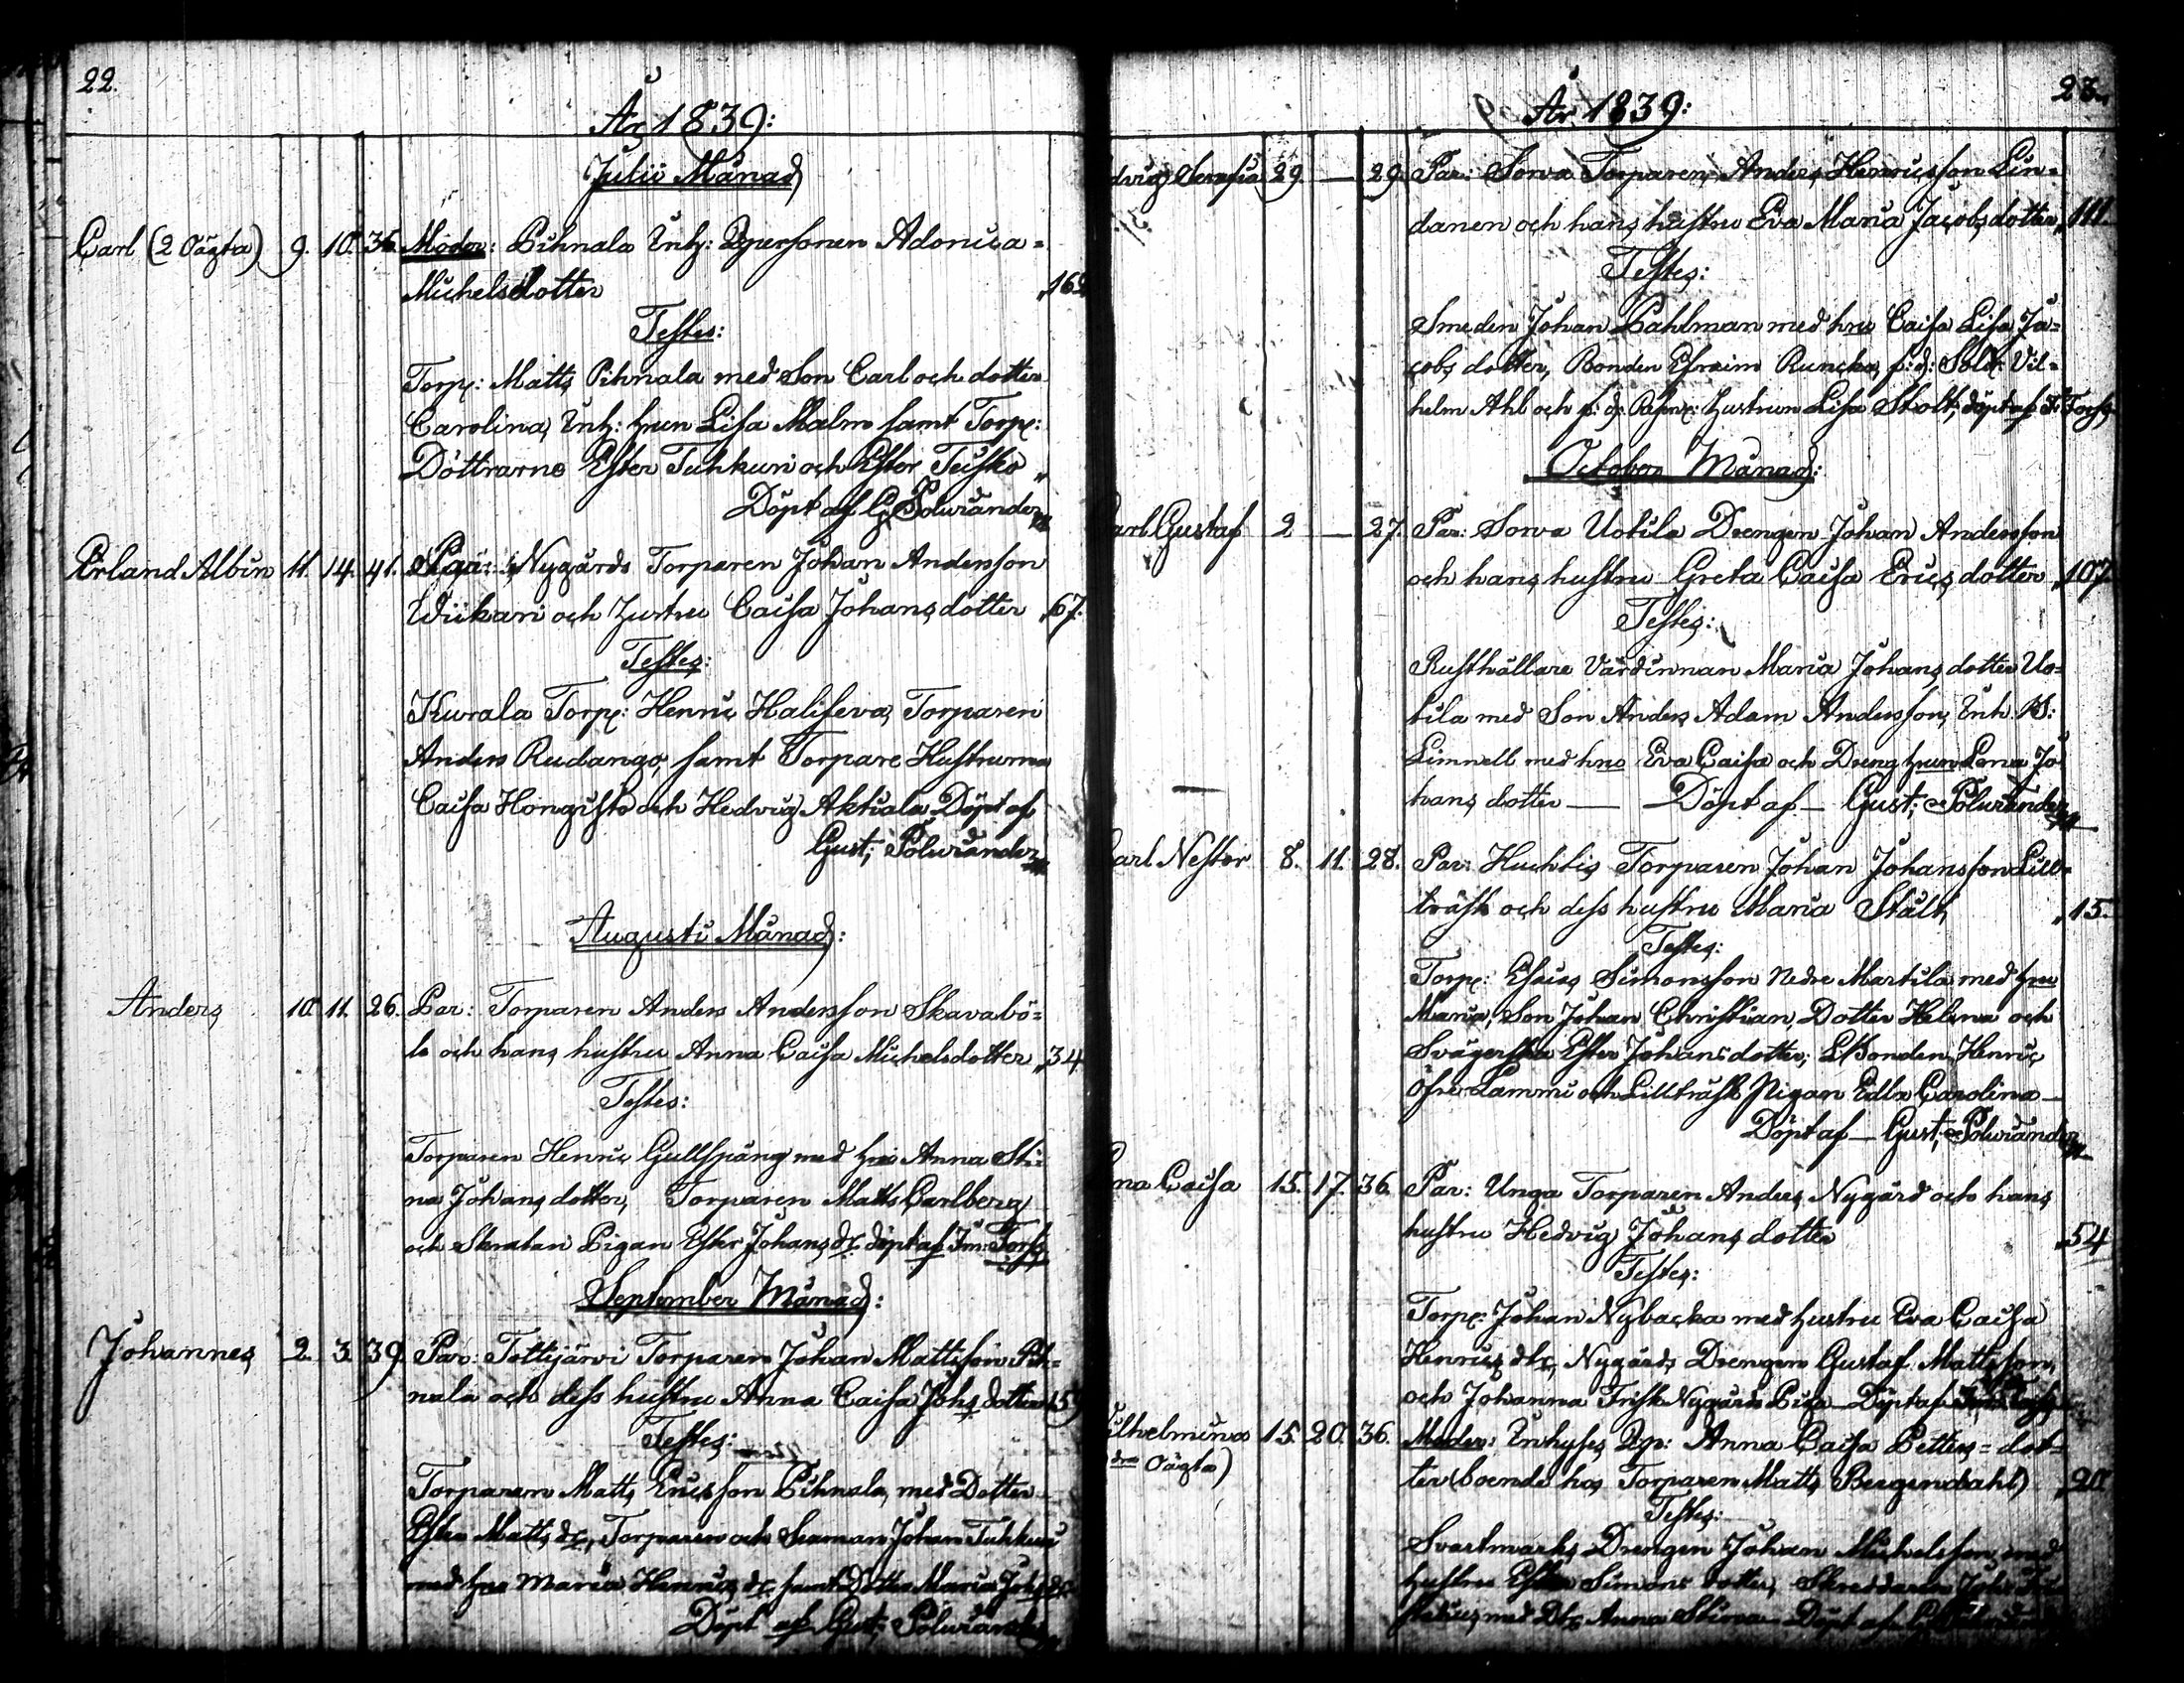 22.
År 1839:
Julii Månad
Carl (2 Oägta) 9. 10. 36. Moder: Pihnala Inh: Qpersonen Adonica=
Michelsdotter „162
Testes:
Torp: Matts Pihnala med Son Carl och dotter
Carolina, Inh: hrun Lisa Malm samt Torp:
Döttrarne Ester Tuhkuri och Ester Tuisko „
Döpt af G. Polviander
Erland Albin 11. 14. 41. Nygårds Torparen Johan Andersson
Wiikari och hustru Caisa Johansdotter „67.
Testes:
Kurala Torp: Henric Haliseva, Torparen
Anders Rudango, samt Torpare Hustrurna
Caisa Hongisto och Hedvig Aktiala. Döpt af
Gust; Polviander
Augusti Månad:
Anders 10. 11. 26. Par: Torparen Anders Andersson Skavabö=
le och hans hustru Anna Caisa Michelsdotter „34
Testes:
Torparen Henric Gullspång med hru Anna Sti=
na Johansdotter, Torparen Matts Carlberg
och Skratan Pigan Ester Johansdr. döpt af Fr: Forss
September Månad:
Johannes 2. 3. 39. Par: Tottijärvi Torparen Johan Mattsson Pih=
nala och dess hustru Anna Caisa Johs dotter 159
Testes:
Torparen Matts Ericsson Pihnala, med Dotter
Ester Matts dr, Torparen och Seaman Johan Tuhkuri
med hru Maria Henrics dr. samt dotter Maria Johs dr.
Döpt af Gust; Polviander
23.
År 1839:
dvig Serafia 29. — 29. Par: Sorva Torparen Anders Henricsson Lin=
danen och hans hustru Eva Maria Jacobsdotter „111.
Testes:
Smeden Johan Dahlman med hru Caisa Lisa Ja=
cobs dotter, Bonden Efraim Runcka, f: d: Sold: Vil=
helm Ahl och f: d: hustrun Lisa Stolt, döpt af Fr: Forss
October Månad:
Carl Gustaf 2 — 27. Par: Sorva Uotila Drengen Johan Andersson
och hans hustru Greta Caisa Erics dotter „107.
Testes:
Rusthållare Värdinnan Maria Johans dotter Uo=
tila med Son Anders Adam Andersson, Inh.
Limnell med hru Eva Caisa och Dreng hrun Lena Jo
hans dotter — Döpt af — Gust; Polviander
Carl Nestor 8. 11. 28. Par: Huchtis Torparen Johan Johansson Lill=
träsk och dess hustru Maria Stålt „15.
Testes:
Torp: Esaias Simonsson Nedre Martila med hru
Maria, Son Johan Christian, Dotter Helena och
Svägerska Ester Johansdotter, Bonden Henric
Öfre Lammi och Lillträsk Pigan Edla Carolina —
Döpt af — Gust; Polviander
na Caisa 15. 17. 36. Par: Unga Torparen Anders Nygård och hans
hustru Hedvig Johans dotter „54
Testes:
Torp: Johan Nybacka med hustru Eva Caisa
Henrics dtr, Nygårds Drengen Gustaf Mattsson,
och Johanna Frisk Nygårds Piga — Döpt af
ilhelmina 15. 20. 36. Moder: Inhyses Qp: Anna Caisa Petters=dot=
Oägta) ter (boende hos Torparen Matts Bergendahl) „20
Testes:
Svartmarks Drengen Johan Michelsson, med
hustru Ester Simons dotter, Skreddaren
med Dtr. Anna Stina — Döpt af